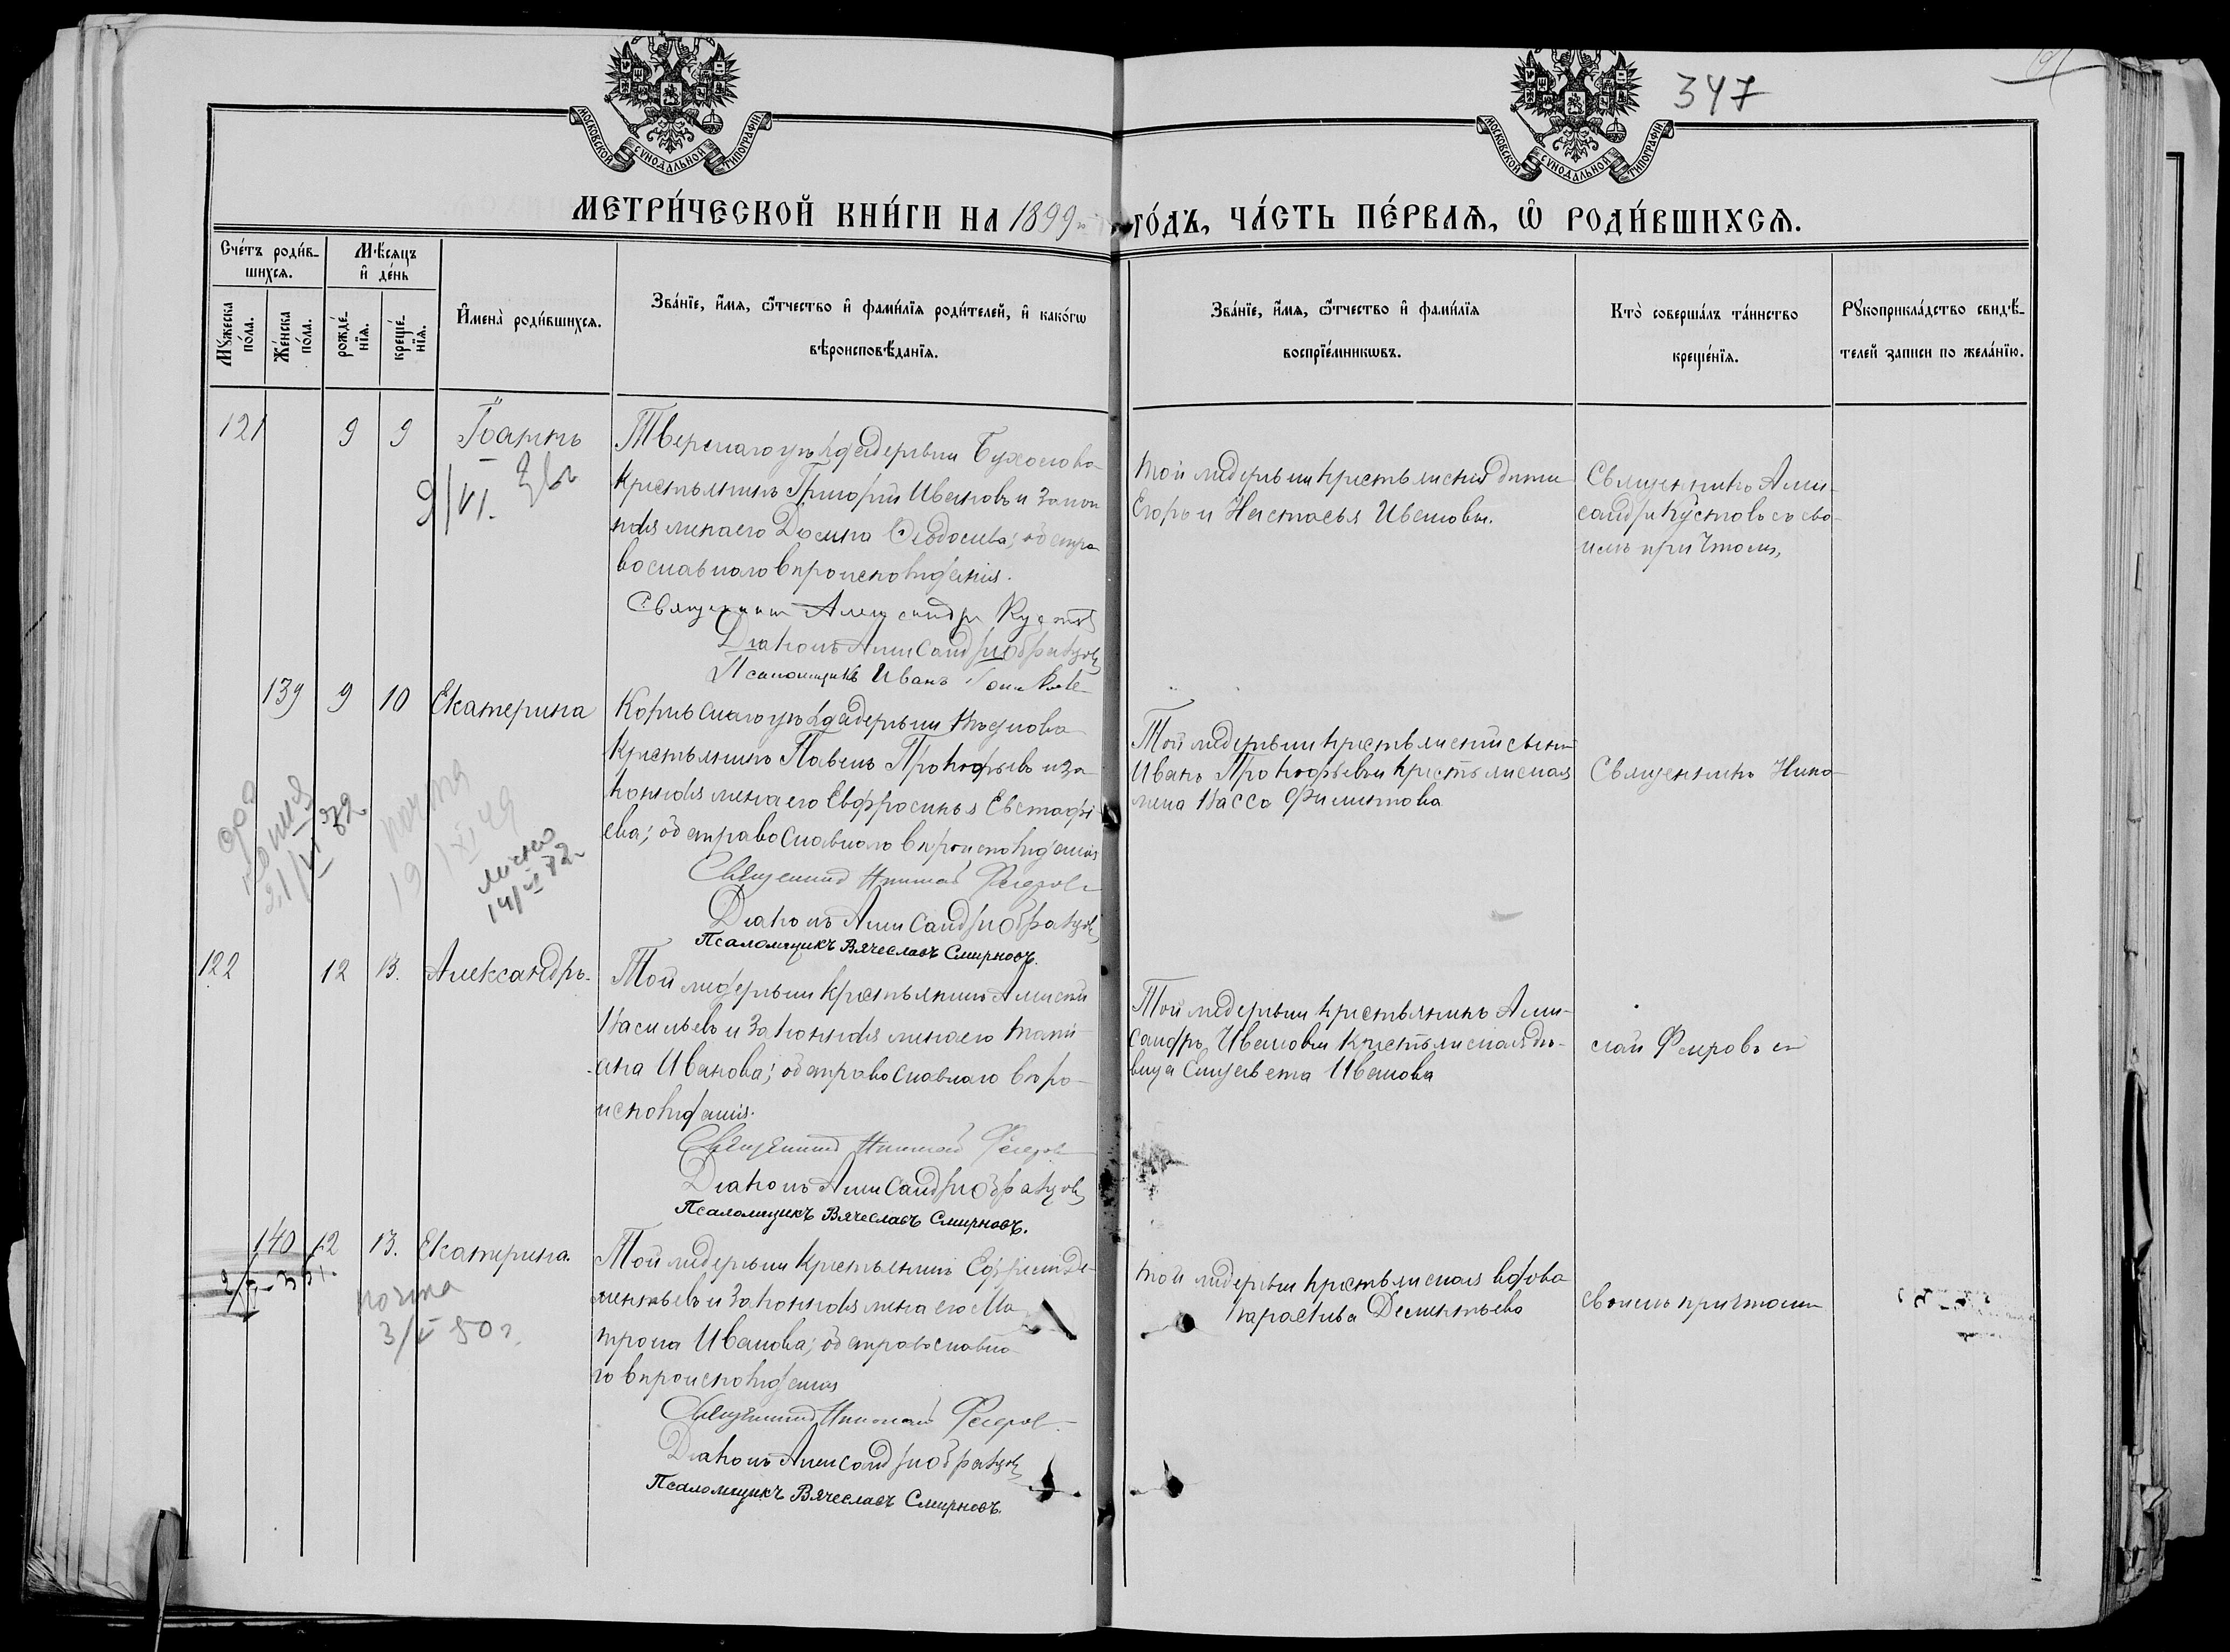 347
МОСКОВСКОЙ СУНОДАЛЬНОЙ ТИПОГРАФІИ
МОСКОВСКОЙ СУНОДАЛЬНОЙ ТИПОГРАФІИ
МЕТРИ́ЧЕСКОЙ КНИ́ГИ НА 1899 го́дъ, ЧА́СТЬ ПЕ́РВАѦ, Ѡ РОДИ́ВШИХСѦ.
Сче́тъ роди́в-
шихсѧ.
Мꙋ́жеска по́ла.
Же́нска по́ла.
Мѣ́сѧцъ
и҆ де́нь
рожде́-
нїѧ.
креще́-
нїѧ.
И҆мена̀ роди́вшихсѧ.
Зва́нїе, и҆́мѧ, ѻ҆́тчество и҆ фами́лїѧ роди́телей, и҆ како́гѡ
вѣроисповѣ́данїѧ.
Зва́нїе, и҆́мѧ, ѻ҆́тчество и҆ фами́лїѧ
воспрїе́мникѡвъ.
Кто̀ соверша́лъ та́инство
креще́нїѧ.
Рꙋкоприкла́дство свидѣ́-
телей записи по жела́нїю.
121 9 9 Іоаннъ
9/VI.
Тверскаго уѣзда деревни
крестьянинъ Григорій Ивановъ и закон
ная жена его Домна Ѳеодосиева; оба пра
вославнаго вѣроисповѣданія.
Священникъ Александръ Кустовъ
Діаконъ Александръ Образцовъ
Псаломщикъ Иванъ
Той же деревни крестьянскія дети
Егоръ и Настасья Ивановы.
Священникъ Алек-
сандръ Кустовъ съ сво-
имъ причтомъ,
139 9 10 Екатерина
копия
21/VI 72
почта
19/XI 49
14/VI 72
уѣзда деревни
крестьянинъ Павелъ Прокофьевъ и за
конная жена его Евфросинья Евстафі
ева; оба православнаго вѣроисповѣданія
Священникъ Николай
Діаконъ Александръ Образцовъ
Псаломщикъ Вячеславъ Смирновъ.
Той же деревни крестьянскій сынъ
Иванъ Прокофьевъ и крестьянская
жена Васса Филиппова
Священникъ Нико-
122 12 13. Александръ.
Той же деревни крестьянинъ Алексѣй
Васильевъ и законная жена его Тати
ана Иванова; оба православнаго вѣро-
исповѣданія.
Священникъ Николай
Діаконъ Александръ Образцовъ
Псаломщикъ Вячеславъ Смирновъ.
Той же деревни крестьянинъ Алек-
сандръ Ивановъ и крестьянская дѣ-
вица Елизавета Иванова
140 12 13. Екатерина.
почта
3/V 50 г.
Той же деревни крестьянинъ Ефремъ Де-
ментьевъ и законная жена его Ма
трона Иванова; оба православна
го вѣроисповѣданія
Священникъ Николай
Діаконъ Александръ Образцовъ
Псаломщикъ Вячеславъ Смирновъ.
Той же деревни крестьянская вдова
Параскева Дементьева
своимъ причтомъ